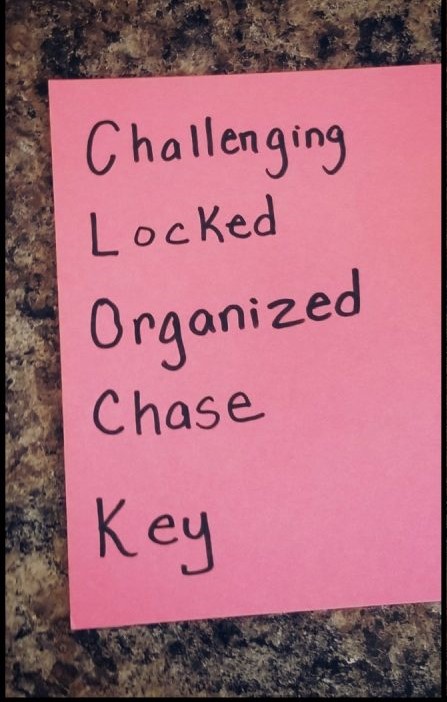 Challenging
Locked
Organized
Chase
Key